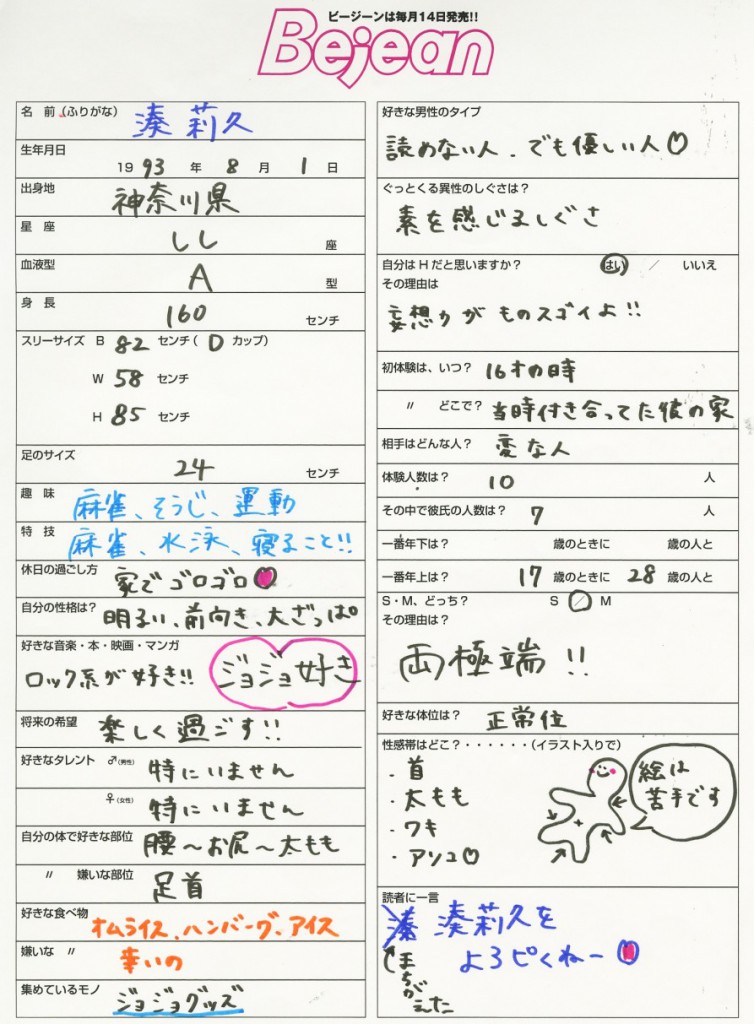 ビージーンは毎月14日発売!!
Bejean
名 前(ふりがな) 湊 莉久
生年月日
19 93 年 8 月 1 日
出身地 神奈川県
星 座 しし 座
血液型 A 型
身 長 160 センチ
スリーサイズ B 82 センチ( D カップ)
W 58 センチ
H 85 センチ
足のサイズ 24 センチ
趣 味 麻雀、そうじ、運動
特 技 麻雀、水泳、寝ること!!
休日の過ごし方 家でゴロゴロ♥
自分の性格は? 明るい、前向き、大ざっぱ
好きな音楽・本・映画・マンガ
ロック系が好き!! ジョジョ好き
将来の希望 楽しく過ごす!!
好きなタレント ♂(男性) 特にいません
♀(女性) 特にいません
自分の体で好きな部位 腰〜お尻〜太もも
〃 嫌いな部位 足首
好きな食べ物 オムライス、ハンバーグ、アイス
嫌いな 〃 辛いの
集めているモノ ジョジョグッズ
好きな男性のタイプ
読めない人、でも優しい人♡
ぐっとくる異性のしぐさは?
素を感じるしぐさ
自分はHだと思いますか? はい / いいえ
その理由は
妄想力がものスゴイよ!!
初体験は、いつ? 16才の時
〃 どこで? 当時付き合ってた彼の家
相手はどんな人? 変な人
体験人数は? 10 人
その中で彼氏の人数は? 7 人
一番年下は? 歳のときに 歳の人と
一番年上は? 17 歳のときに 28 歳の人と
S・M、どっち? S / M
その理由は?
両極端!!
好きな体位は? 正常位
性感帯はどこ?・・・・・・(イラスト入りで)
・首
・太もも
・ワキ
・アソコ♡
絵は
苦手です
読者に一言
湊 湊莉久を
よろピくねー♥
まちがえた